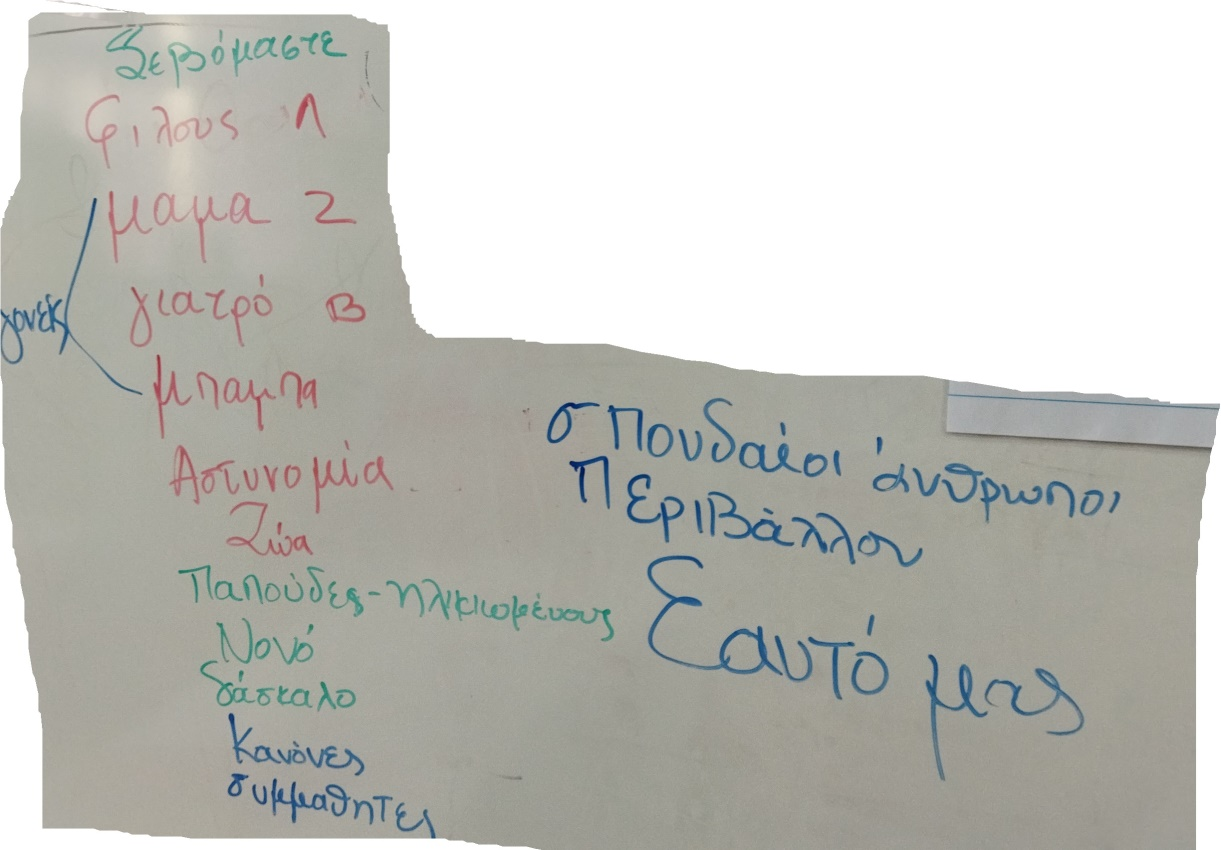 Σεβόμαστε
φιλους 1
μαμα 2
γιατρό 3
γονείς
μπαμπα
Αστυνομία
Ζώα
Παπούδες - ηλικιωμένους
Νονό
δάσκαλο
Κανόνες
συμμαθητες
σπουδαίοι άνθρωποι
Περιβάλλον
Εαυτό μας